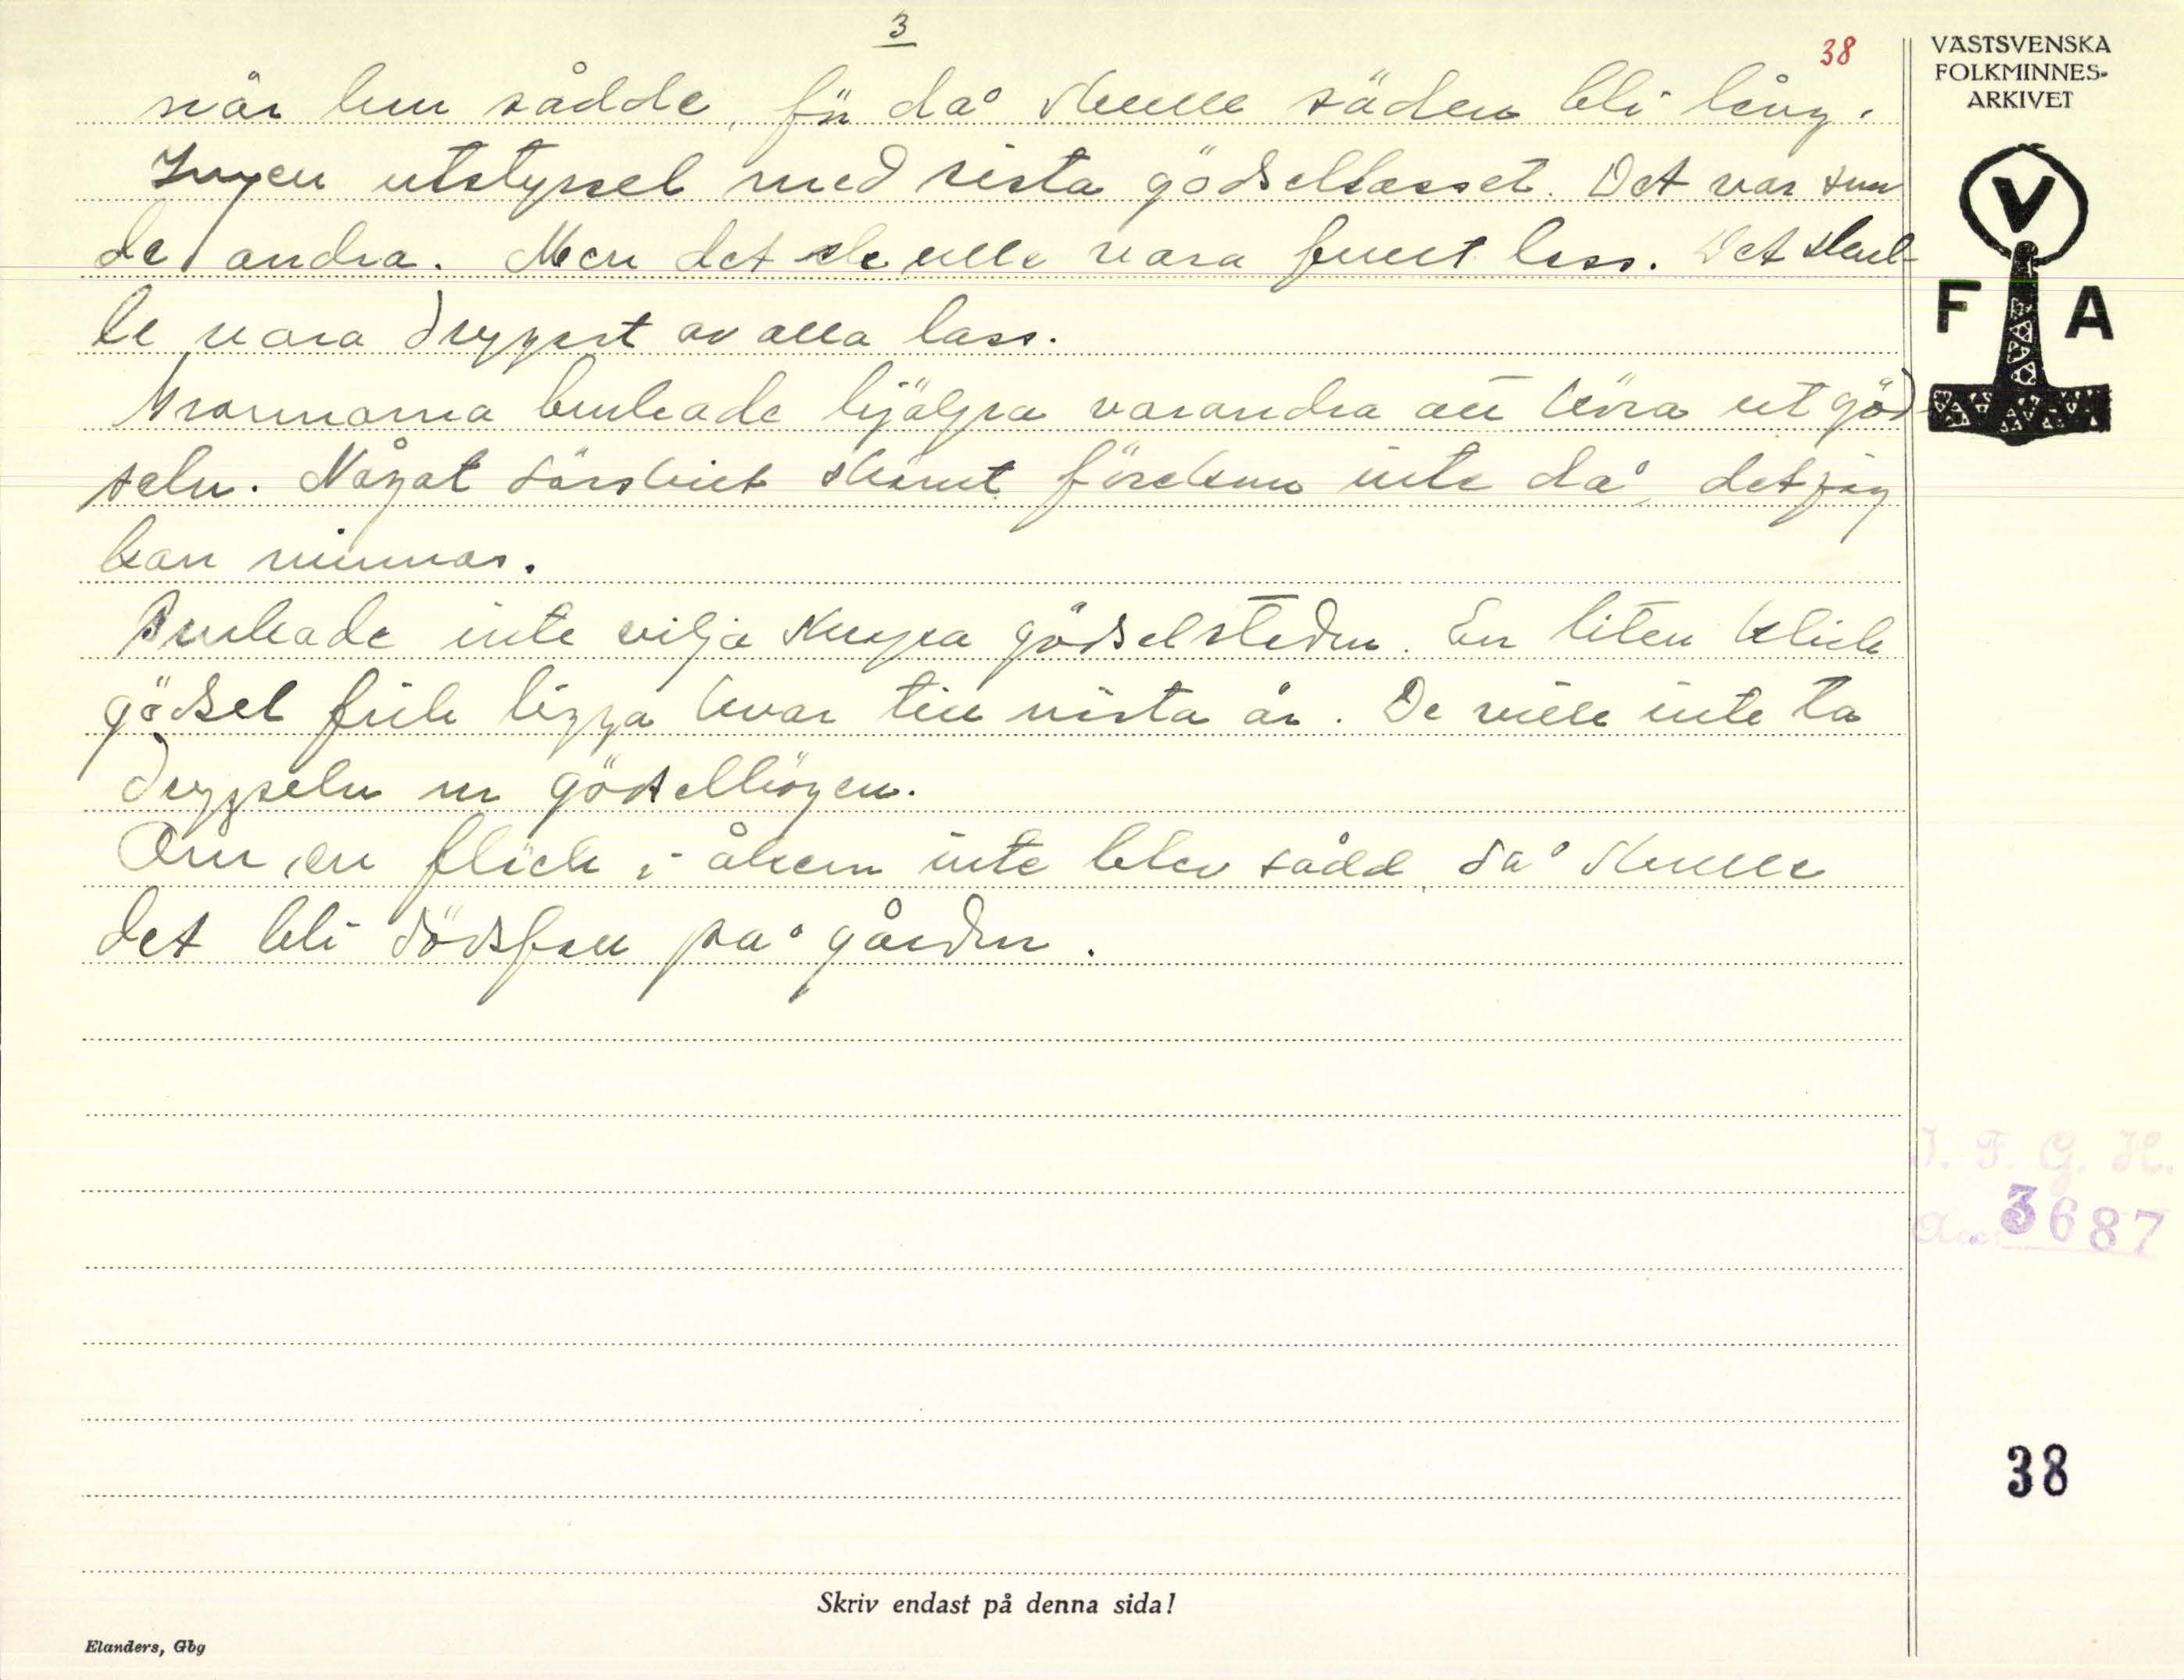 3
38
när hun sådde, för då skulle säden bli lång.
Ingen utstyrsel med sista gödsellasset. Det var som
de andra. Men det skulle vara fullt lass. Det skul-
le vara drygast av alla lass.
Grannarna brukade hjälpa varandra att köra ut göd-
seln. Något särskilt skämt förekom inte då, det jag
kan minnas.
Brukade inte vilja skrapa gödselsteden. En liten klick
gödsel fick ligga kvar till nästa år. De ville inte ta
drygseln ur gödselhögen.
Om en fläck i åkern inte blev sådd, då skulle
det bli dödsfall på gården.
VÄSTSVENSKA
FOLKMINNES-
ARKIVET
V
F A
I. F. G. H.
3687
38
Skriv endast på denna sida!
Elanders, Gbg